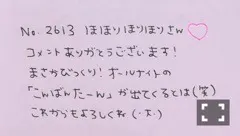 No. 2613 ほほりほりほりさん♡
コメントありがとうございます!
まさかびっくり!オールナイトの
「こんばんたーん」が出てくるとは(笑)
これからもよろしくね(・x・)